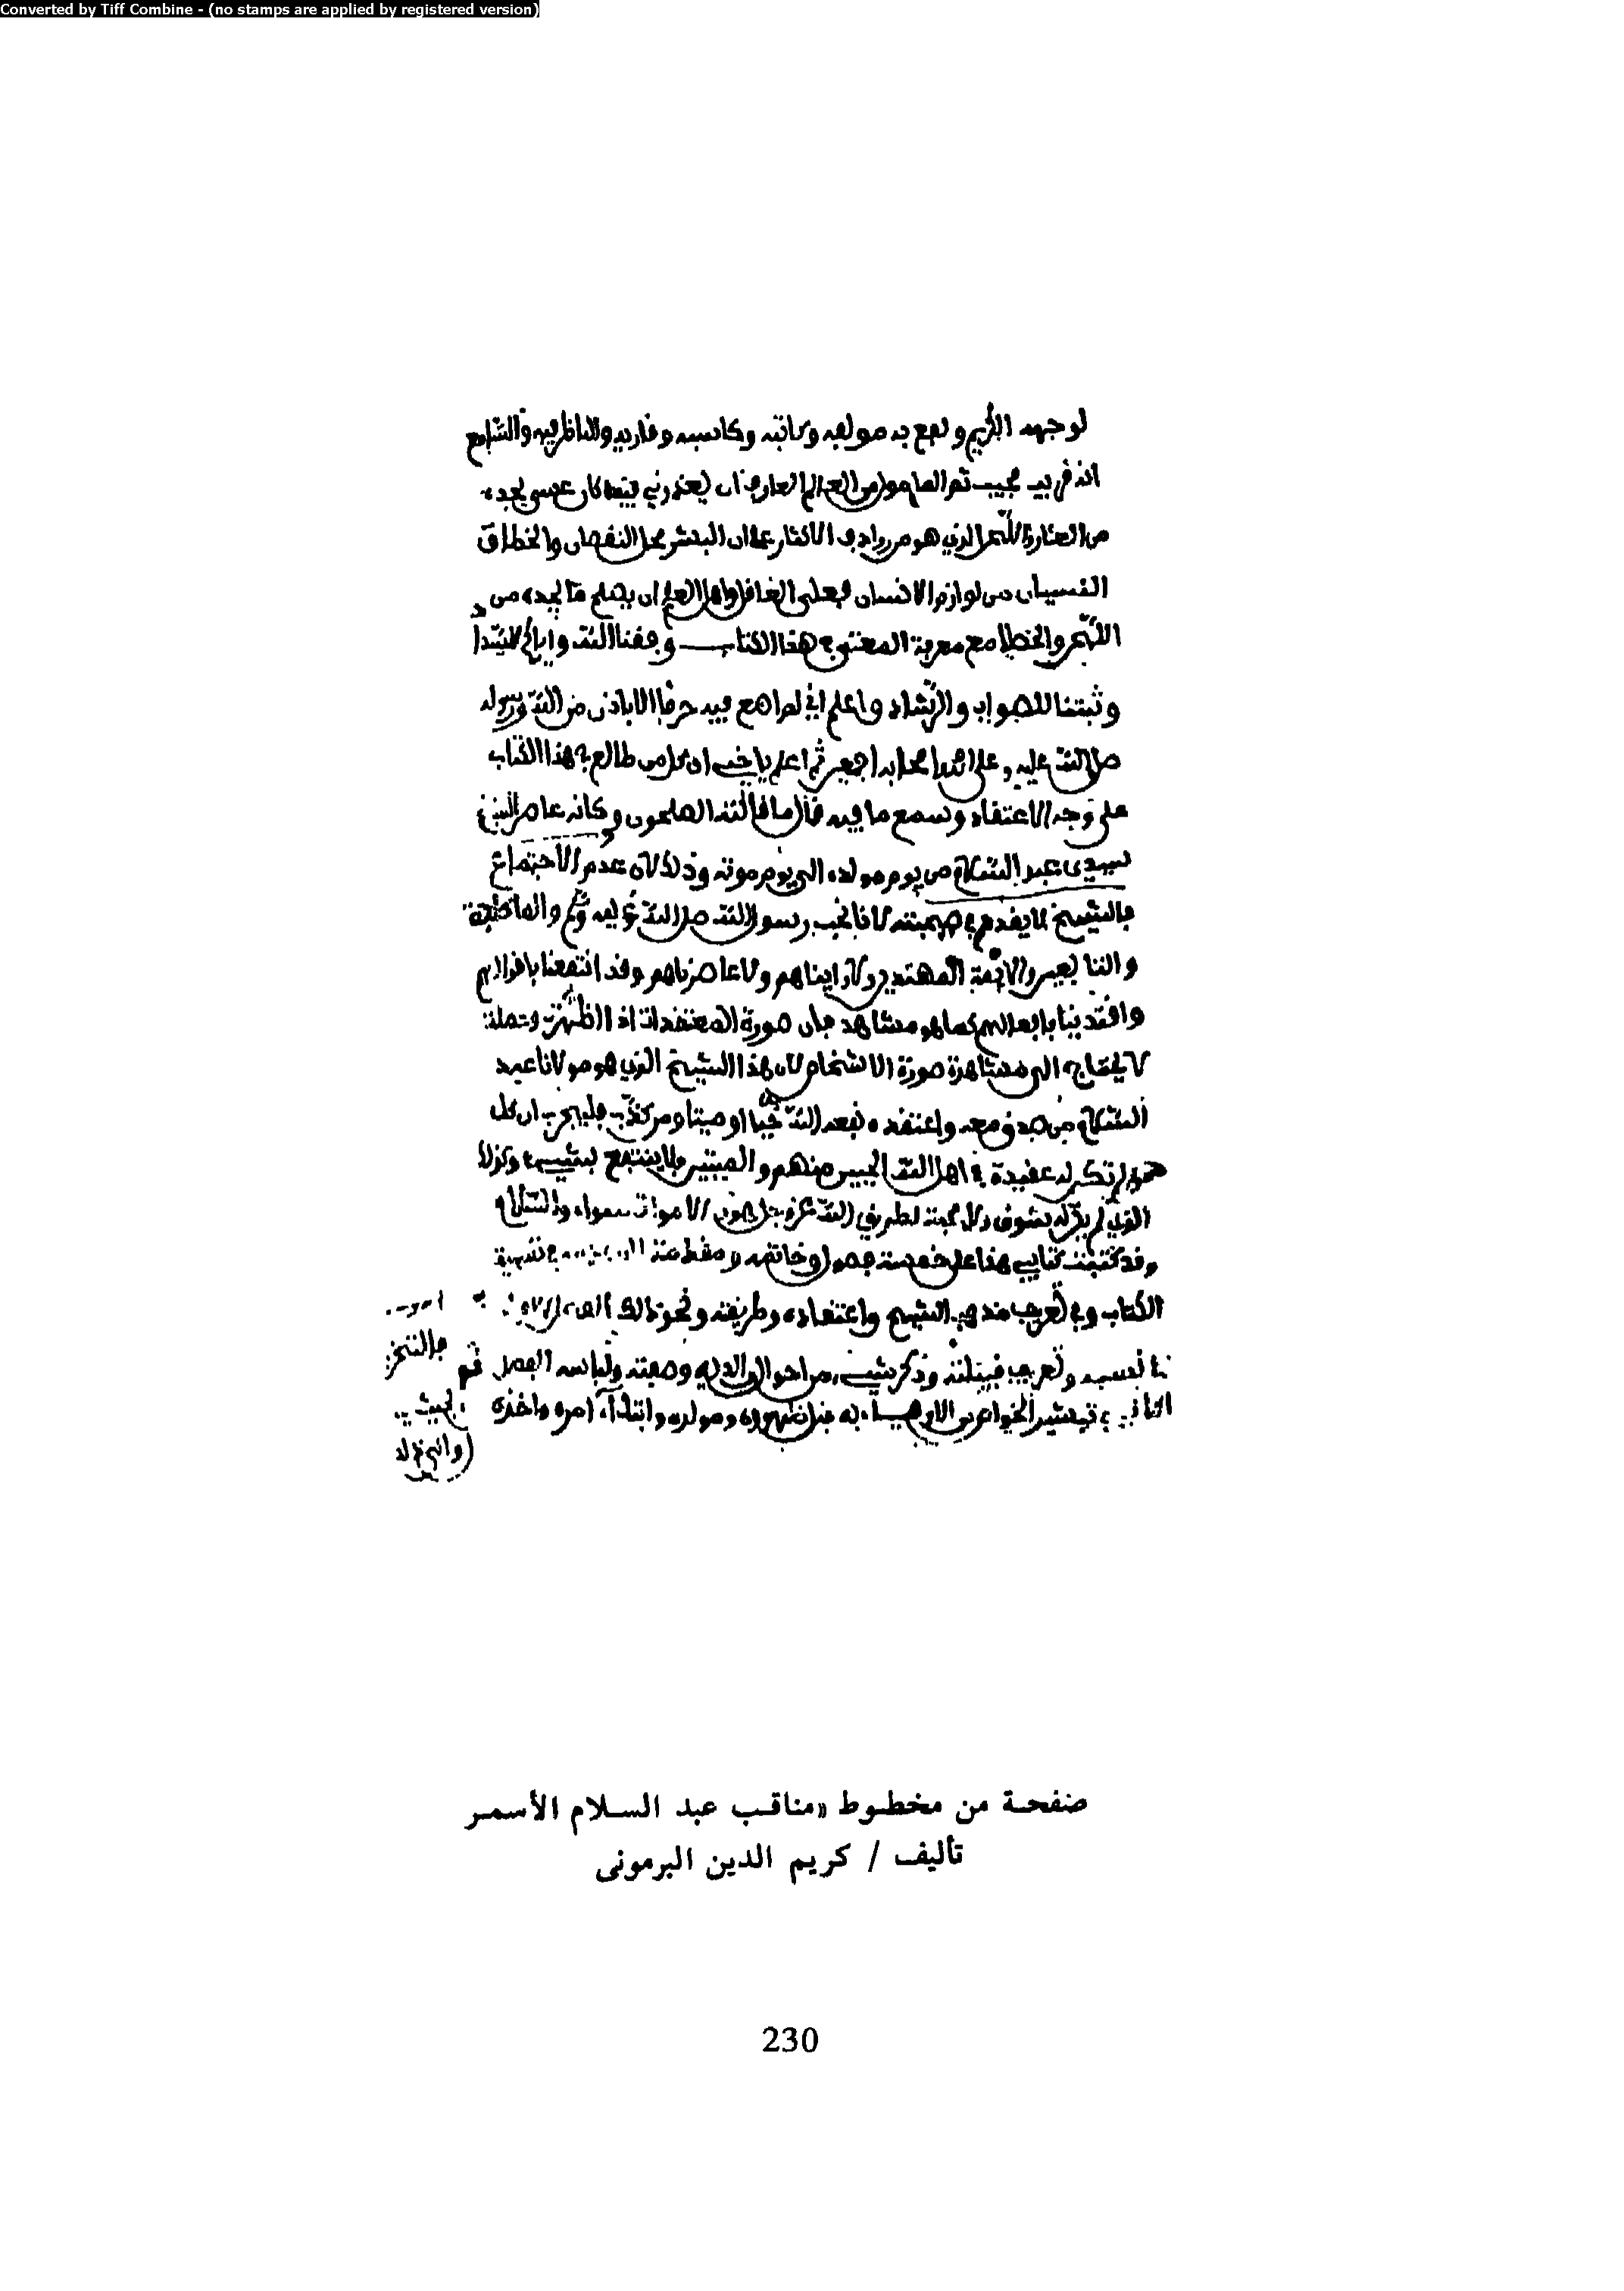 Converted by Tiff Combine - (no stamps are applied by registered version)
لوجهه الكريم ونفع به مولفه وكاتبه وكاسبه وقاريه والناظر فيه والسامع
انه قريب مجيب ثم المامول من العالم العارف ان يعذرني فيما كان عسى يجده
من العثارة الذي هو من روادف الاكثار على ان البشر محل النقصان والخطا و
النسيان من لوازم الانسان فعلى الغافل واهل العلم ان يصلح ما يجده من
والخطا مع معرفة المعنى في هذا الكتاب وفقنا الله واياكم
وثبتنا للصواب والرشاد واعلم اني لم اضع فيه حرفا الا باذن من الله ورسوله
صلى الله عليه وعلى اله واصحابه اجمعين ثم اعلم يا اخي ان كل من طالع في هذا الكتاب
على وجه الاعتقاد وسمع ما فيه قال ما قال الله الصلحون وكانه عاصر الشيخ
سيدي عبد السلام من يوم مولده الى يوم موته وذلك لان عدم الاجتماع
بالشيخ لا يقدح في صحبته لانا نحب رسول الله صلى الله عليه وسلم والصحابة
والتابعين والائمة المهتدين ولا رايناهم ولا عاصرناهم وقد انتفعنا باقوالهم
واقتدينا بافعالهم كما هو مشاهد فان صورة المعتقدات اذا ظهرت وحملت
لا يحتاج الى مشاهدة صورة الاشخاص لان هذا الشيخ الذي هو مولانا عبد
السلام من صدق معه واعتقده نفعه الله حيا او ميتا ومن كذب فليجرب ان كل
من لم تكن له عقيدة في اهل الله الحيين منهم والميتين فلا ينتفع بشيء وكذلك
الذي لم يكن له تشوف ولا محبة لطريق الله عز وجل فهو والاموات سواء والسلام
وقد كتبت كتابي هذا على خمسة فصول وخاتمة ومقدمة في تسمية
الكتاب وفي تعريف مذهب الشيخ واعتقاده وطريقته ونحو ذلك الفصل الاول
نسبه وتعريف قبيلته وذكر شيء من احوال والديه وصفته ولباسه الفصل
الثاني في تبشير الخواص من الاولياء به قبل ظهوره ومولده وابتداء امره واخذه
صفحة من مخطوط «مناقب عبد السلام الأسمر
تأليف / كريم الدين البرموني
230